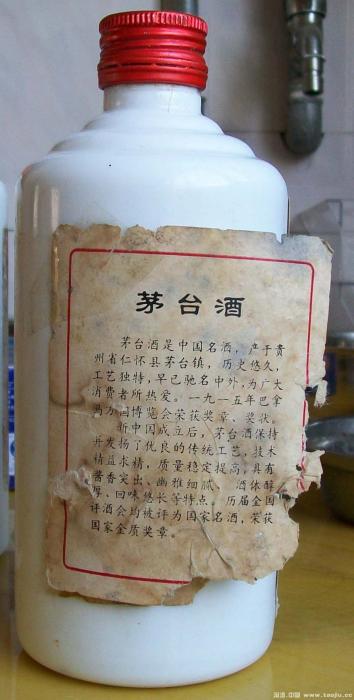 茅台酒
茅台酒是中国名酒，产于贵
州省仁怀县茅台镇，历史悠久，
工艺独特，早已驰名中外，为广大
消费者所热爱。一九一五年巴拿
马万国博览会荣获奖章、奖状。
新中国成立后，茅台酒保持
并发扬了优良的传统工艺，技术
精益求精，质量稳定提高，具有
酱香突出、幽雅细腻、酒体醇
厚、回味悠长等特点。历届全国
评酒会均被评为国家名酒，荣获
国家金质奖章。
淘酒.中国 www.taoju.cc